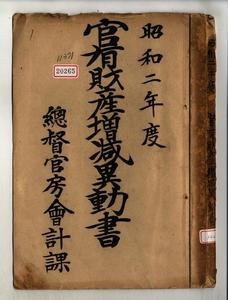 昭和二年度
官有財産増減異動書
總督官房會計課
20265